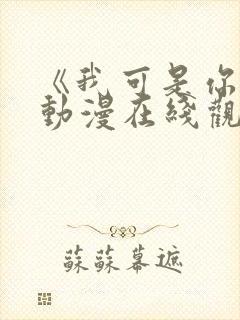 《我可是你
動漫在綫觀
蘇蘇幕遮